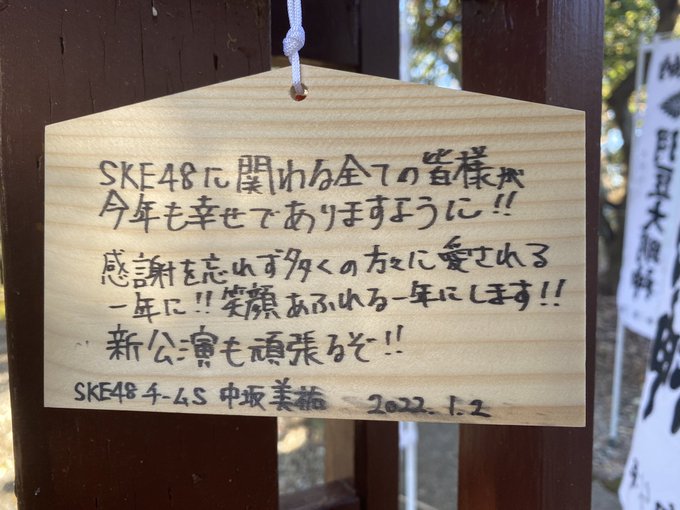 SKE48に関わる全ての皆様が
今年も幸せでありますように!!
感謝を忘れず多くの方々に愛される
一年に!!笑顔あふれる一年にします!!
新公演も頑張るぞ!!
SKE48 チームS 中坂美祐 2022.1.2
大明神